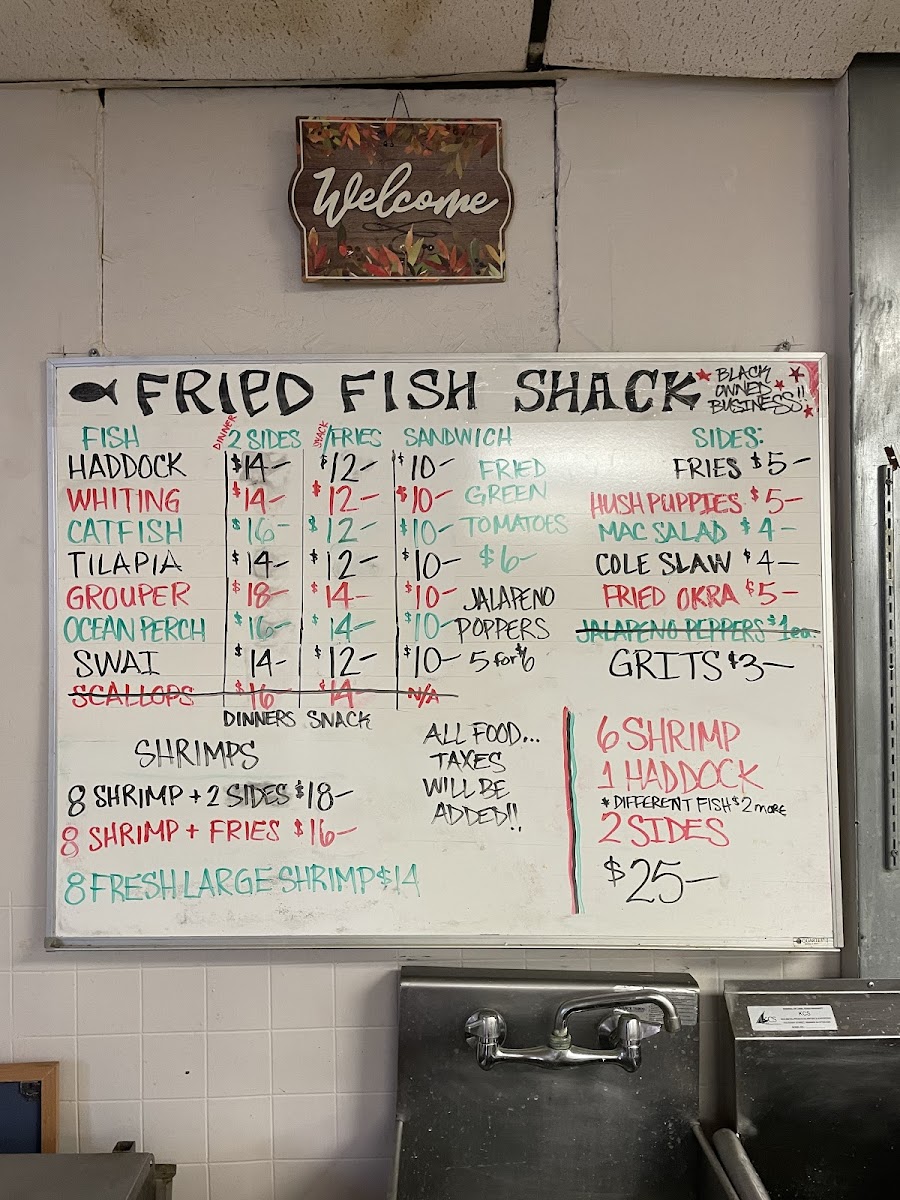 Welcome
FRIED FISH SHACK
BLACK
OWNED
BUSINESS!!
FISH DINNER 2 SIDES SNACK /FRIES SANDWICH
HADDOCK $14- $12- $10-
WHITING $14- $12- $10-
CATFISH $16- $12- $10-
TILAPIA $14- $12- $10-
GROUPER $18- $14- $10-
OCEAN PERCH $16- $14- $10-
SWAI $14- $12- $10-
SCALLOPS $16 $14- N/A
DINNERS SNACK
FRIED
GREEN
TOMATOES
$6-
JALAPENO
POPPERS
5 for $6
SIDES:
FRIES $5-
HUSH PUPPIES $5-
MAC SALAD $4-
COLE SLAW $4-
FRIED OKRA $5-
JALAPENO PEPPERS $1ea.
GRITS $3-
SHRIMPS
8 SHRIMP + 2 SIDES $18-
8 SHRIMP + FRIES $16-
8 FRESH LARGE SHRIMP $14
ALL FOOD...
TAXES
WILL BE
ADDED!!
6 SHRIMP
1 HADDOCK
* DIFFERENT FISH $2 more
2 SIDES
$25-
KCS